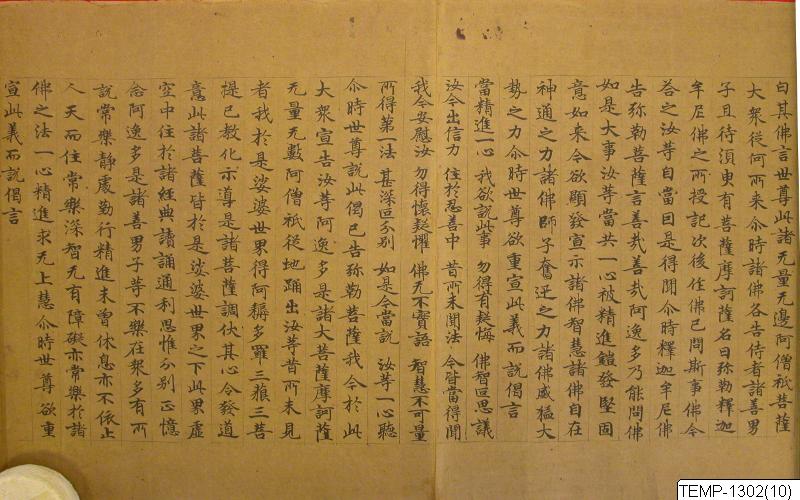 白其佛言世尊此諸无量无邊阿僧祇菩薩
大衆從何所來尒時諸佛各告侍者諸善男
子且待湏臾有菩薩摩訶薩名曰弥勒釋迦
牟尼佛之所授記次後作佛已問斯事佛今
荅之汝等自當因是得聞尒時釋迦牟尼佛
告弥勒菩薩言善哉善哉阿逸多乃能問佛
如是大事汝等當共一心被精進鎧發堅固
意如來今欲顯發宣示諸佛智慧諸佛自在
神通之力諸佛師子奮迅之力諸佛威猛大
勢之力尒時世尊欲重宣此義而說偈言
當精進一心 我欲說此事 勿得有疑悔 佛智叵思議
汝今出信力 住於忍善中 昔所未聞法 今皆當得聞
我今安慰汝 勿得懷疑懼 佛无不實語 智慧不可量
所得第一法 甚深叵分別 如是今當說 汝等一心聽
尒時世尊說此偈已告弥勒菩薩我今於此
大衆宣告汝等阿逸多是諸大菩薩摩訶薩
无量无數阿僧祇從地踊出汝等昔所未見
者我於是娑婆世界得阿耨多羅三藐三菩
提已教化示導是諸菩薩調伏其心令發道
意此諸菩薩皆於是娑婆世界之下此界虛
空中住於諸經典讀誦通利思惟分別正憶
念阿逸多是諸善男子等不樂在衆多有所
說常樂靜處勤行精進未曾休息亦不依止
人天而住常樂深智无有障礙亦常樂於諸
佛之法一心精進求无上慧尒時世尊欲重
宣此義而說偈言
TEMP-1302(10)